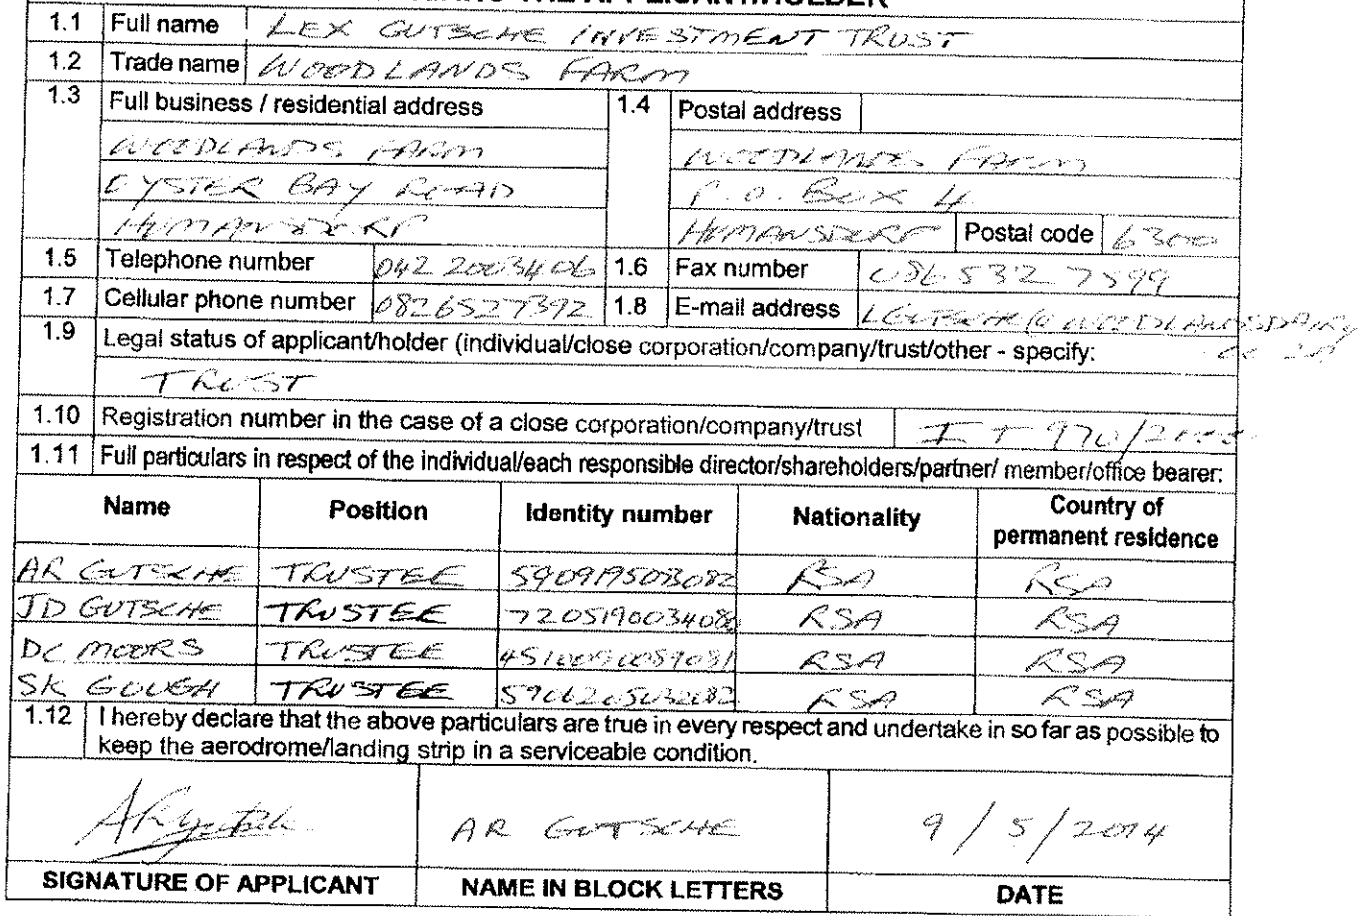 1.1 Full name LEX GUTSCHE INVESTMENT TRUST
1.2 Trade name WOODLANDS FARM
1.3 Full business / residential address 1.4 Postal address
WOODLANDS FARM WOODLANDS FARM
OYSTER BAY ROAD P.O. BOX 4
HUMANSDORP HUMANSDORP Postal code 6300
1.5 Telephone number 042 2003406 1.6 Fax number 086 532 7599
1.7 Cellular phone number 0826527392 1.8 E-mail address LGUTSCHE@WOODLANDSDAIRY
1.9 Legal status of applicant/holder (individual/close corporation/company/trust/other - specify:
TRUST
1.10 Registration number in the case of a close corporation/company/trust IT 970/
1.11 Full particulars in respect of the individual/each responsible director/shareholders/partner/ member/office bearer:
Name Position Identity number Nationality Country of permanent residence
AR GUTSCHE TRUSTEE RSA RSA
JD GUTSCHE TRUSTEE RSA RSA
DC MOORS TRUSTEE RSA RSA
SK GOUGH TRUSTEE RSA RSA
1.12 I hereby declare that the above particulars are true in every respect and undertake in so far as possible to
keep the aerodrome/landing strip in a serviceable condition.
AR GUTSCHE 9/5/2014
SIGNATURE OF APPLICANT NAME IN BLOCK LETTERS DATE